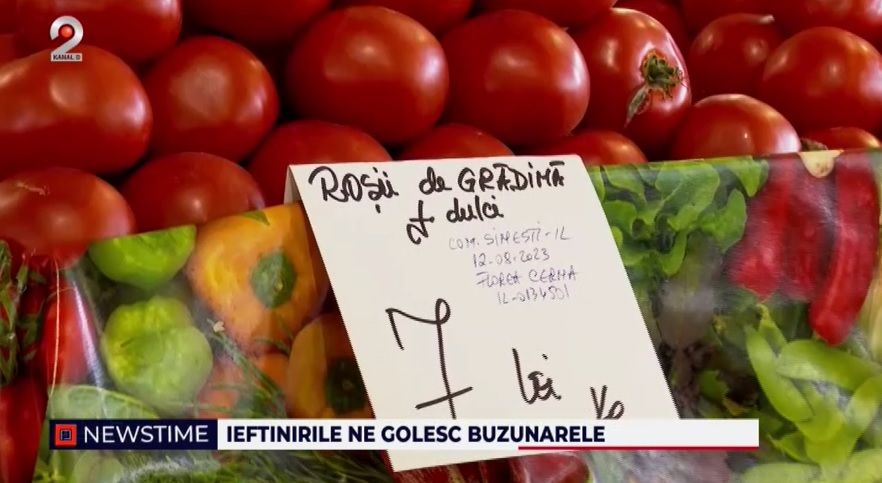 2
KANAL D
ROȘII de GRĂDINĂ
+ dulci
COM. SINESTI-IL
12-08-2023
FLOREA
IL-0134501
7 lei
NEWSTIME
IEFTINIRILE NE GOLESC BUZUNARELE